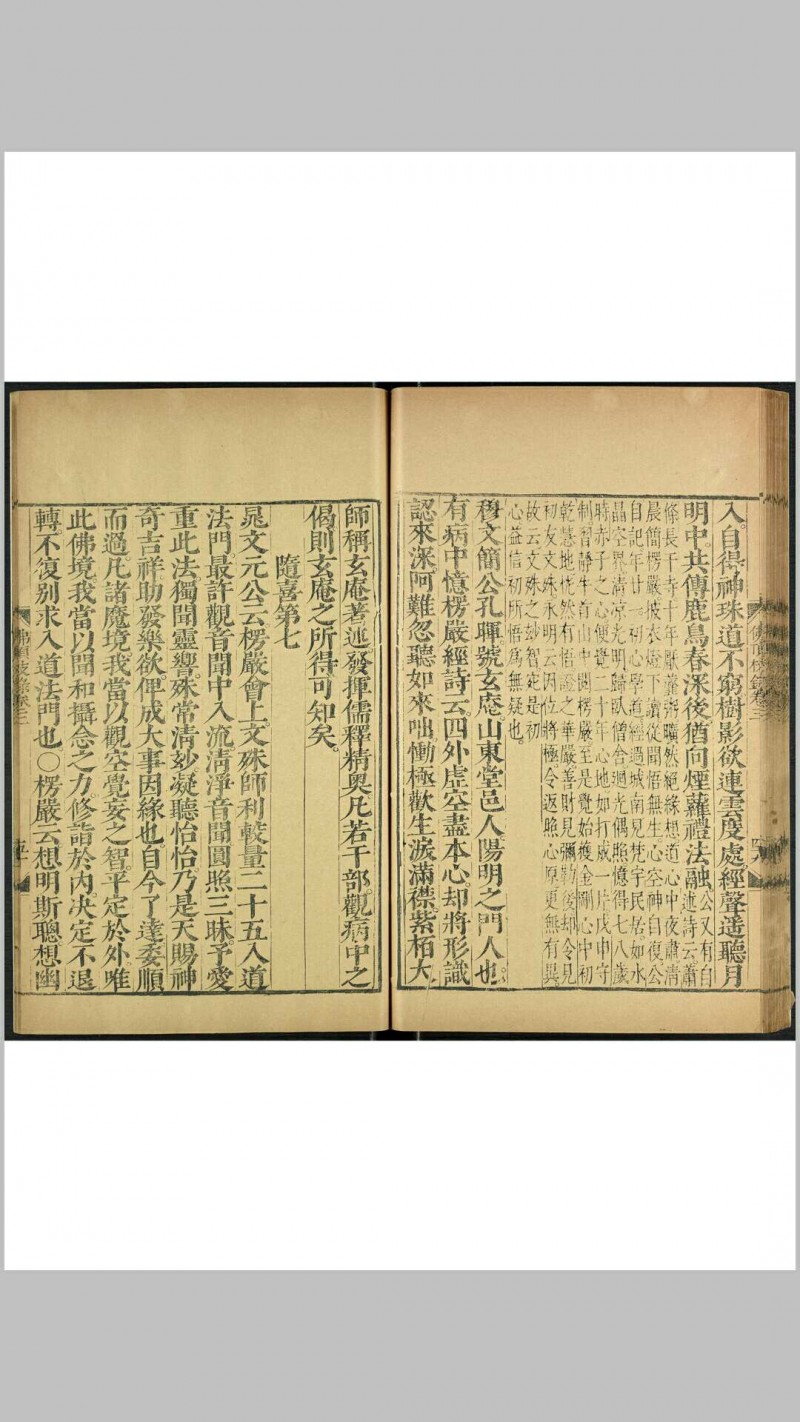 入自得神珠道不窮樹影欲連雲度處經聲遥聽月
明中共傳鹿鳥春深後猶向煙蘿禮法融公又有自
述詩云蕭
條長干寺十年厭藿粥曠然絕緣想道心中夜肅清
晨簡楞嚴披衣燈下讀從聞悟無生心空神自復公
自記年廿一初心學道經過城南見梵宇民居如水
晶空界清凉光明歸臥僧舍迴光偶照憶得七八歲
時赤子之心便覺二十年心地如打成一片戊申守
制習靜牛首山中閱楞嚴至是覺始獲金剛心中初
乾慧地恍然有悟證之華嚴善財見彌勒後却令見
初友文殊永明云因位將極令返照心原更無有異
故云文殊之玅智宛是初
心益信初所悟爲無疑也
穆文簡公孔暉號玄庵山東堂邑人陽明之門人也
有病中憶楞嚴經詩云四外虛空盡本心却將形識
認來深阿難忽聽如來咄慟極歡生淚滿襟紫栢大
師稱玄庵著述發揮儒釋精奥凡若干部觀病中之
偈則玄庵之所得可知矣
隨喜第七
晁文元公云楞嚴會上文殊師利較量二十五入道
法門最許觀音聞中入流清淨音聞圓照三昧予愛
重此法獨聞靈響殊常清玅凝聽怡怡乃是天賜神
奇吉祥助發樂欲俾成大事因緣也自今了達委順
而過凡諸魔境我當以觀空覺妄之智平定於外唯
此佛境我當以聞和攝念之力修詣於内決定不退
轉不復别求入道法門也○楞嚴云想明斯聰想幽